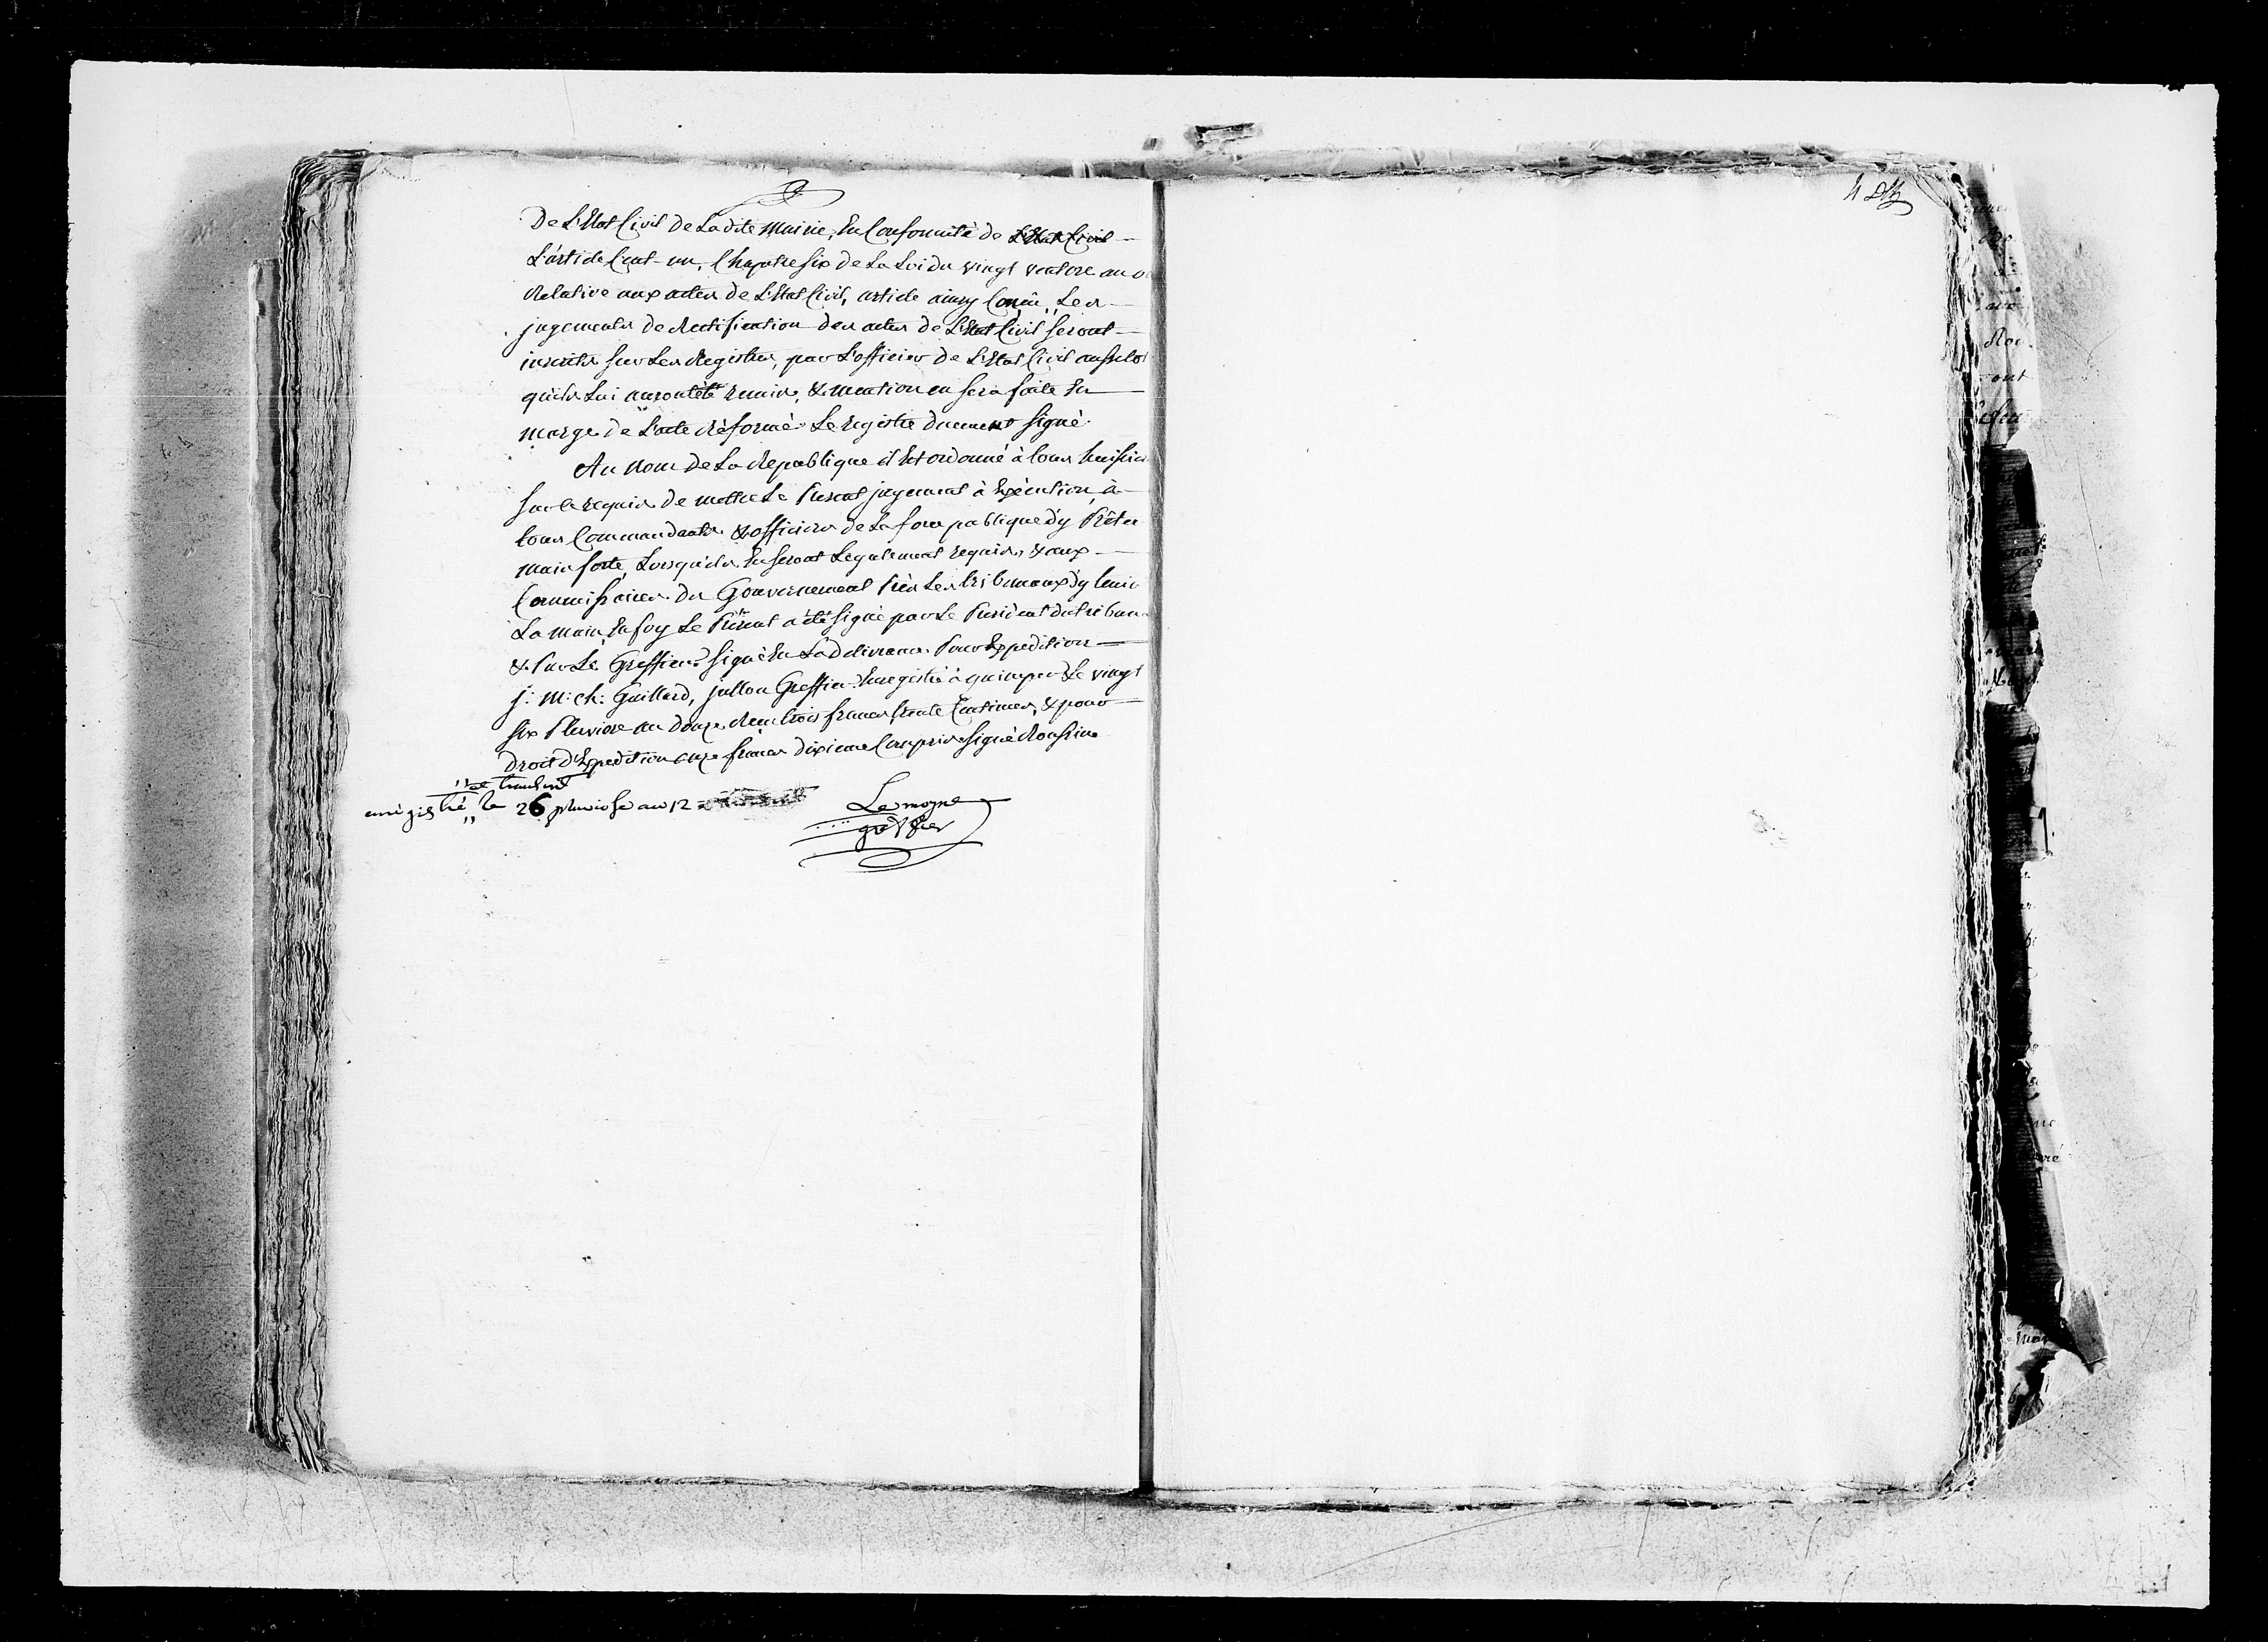 De L'Etat Civil de Ladite Mairie, En Conformité de L'Etat Civil
L'article Cent-un, Chapitre Six de La Loi du vingt ventose an
Relative aux actes de L'Etat Civil, article ainsy Conçu, Les
jugements de Rectification des actes de L'Etat Civil seront
inscrits sur Les Registres, par L'officier de L'Etat Civil aussitot
qu'ils Lui auront été remis, & mention en sera faite En
marge de L'acte Réformé. Le registre duement signé.
Au nom de La Republique il Est ordonné à tous huissiers
sur le requis de mettre Le Present jugement à Exécution, à
tous Commandants & officiers de La force publique d'y Prêter
main forte, Lorsqu'ils En seront Legalement requis, & aux
Commissaires du Gouvernement Près Les tribunaux d'y tenir
La main, En foy Le Présent a été signé par Le President du tribunal
& Par Le Greffier. Signé En Lad delivrance. Pour Expedition
j: M: ch: Guillard, jullou Greffier. Enregistré à quimper Le vingt
six Pluviose an Douze. Reçu trois francs, trente Centimes, & pour
Droit d'Expedition onze francs dixieme Compris. Signé
enregistré le 26 pluviose an 12
Lemoyne
greffier
4